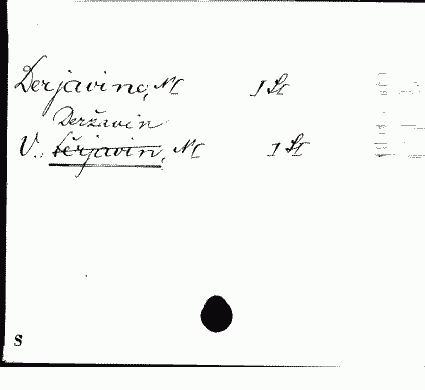 Derjavine, M 1 St
Deržavin
V. Děrjavin, M 1 St
S